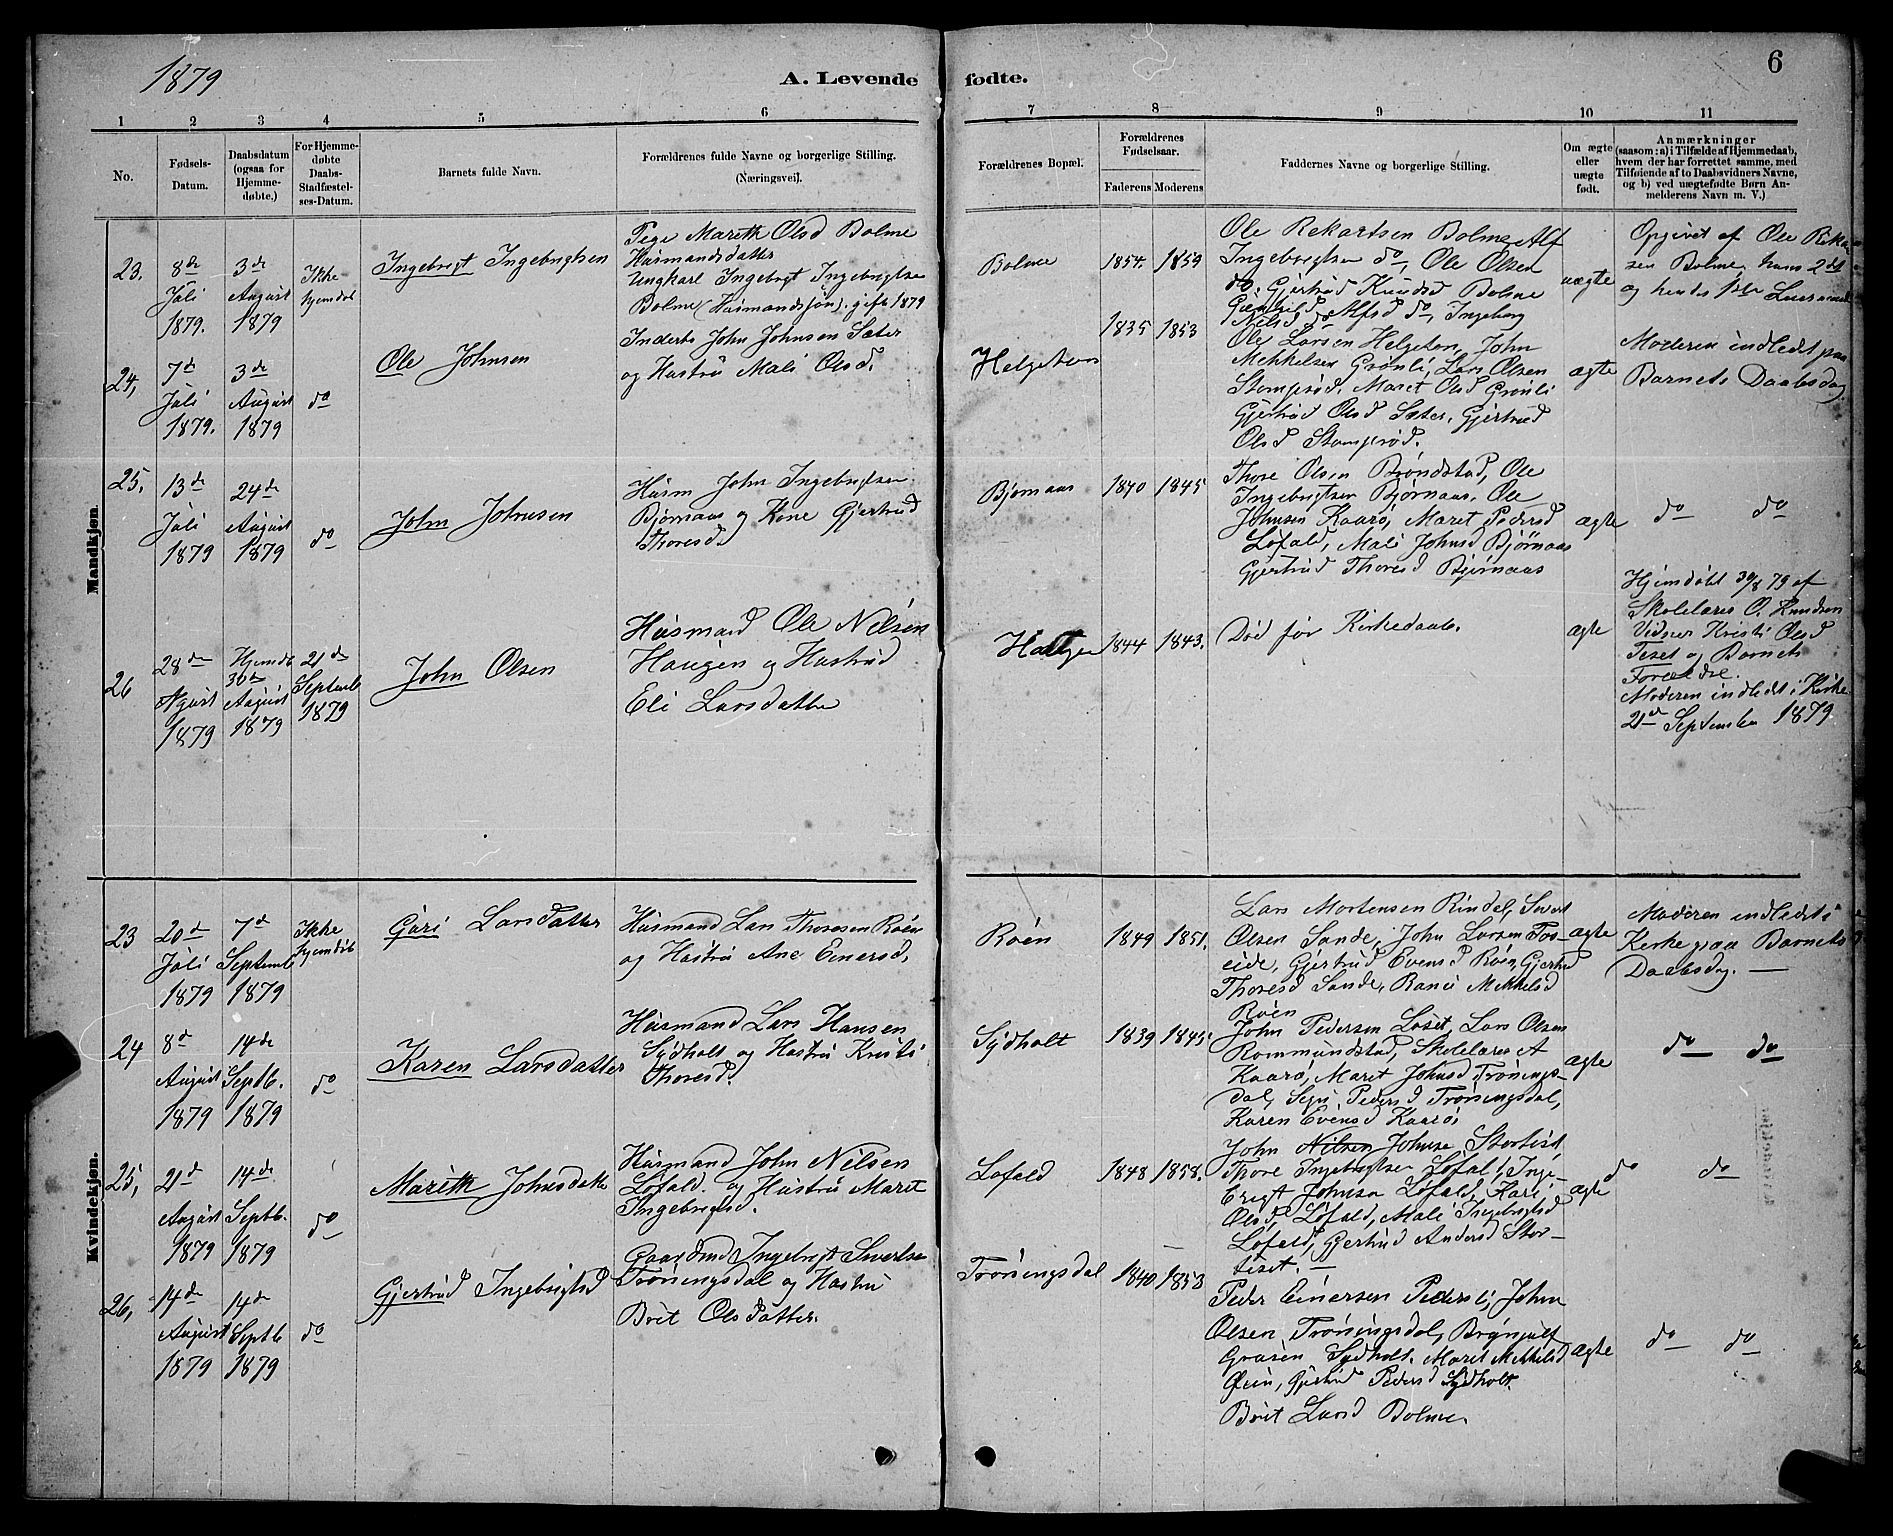 1879
A. Levende fødte.
6
1 2 3 4 5 6 7 8 9 10 11
No.
Fødsels-Datum.
Daabsdatum (ogsaa for Hjemmedøbte.)
For Hjemmedøbte Daabs-Stadfæstelses-Datum.
Barnets fulde Navn.
Forældrenes fulde Navne og borgerlige Stilling. (Næringsvei).
Forældrenes Bopæl.
Forældrenes Fødselsaar.
Faderens Moderens
Faddernes Navne og borgerlige Stilling.
Om ægte eller uægte født.
Anmærkninger (saasom: a) i Tilfælde af Hjemmedaab, hvem der har forrettet samme, med Tilføiende af to Daabsvidners Navne, og b) ved uægtefødte Børn Anmelderens Navn m. V.)
Mandkjøn.
23.
8de Juli 1879.
3de August 1879
Ikke hjemdøb
Ingebrigt Ingebrigtsen
Pige Marith Olsd Bolme
Husmandsdatter
Ungkarl Ingebrigt Ingebrigtsen
Bolme (Husmandssøn). gift 1879
Bolme
1854. 1859
Ole Rekartsen Bolme, Alf
Ingebrigtsen do, Ole Olsen
do, Gjertrud Knudsd Bolme
Gunhild Alfsd do, Ingeborg
Nilsd do
uægte
Opgivet af Ole
sen Bolme, hans 2det
og hendes 1ste
24,
7de Juli 1879.
3de August 1879
do
Ole Johnsen
Inderst John Johnsen Sæter
og Hustru Mali Olsd.
Helgetun
1835 1853
Ole Larsen Helgeton, John
Mekkelsen Grønli, Lars Olsen
Stomprød, Maret Olsd Grønli
Gjertrud Olsd Sæter, Gjertrud
Olsd Stomprød.
ægte
Moderen indledet paa
Barnets Daabsdag
25.
13de Juli 1879
24de August 1879
do
John Johnsen
Husm John Ingebrigtsen
Bjørnaas og Kone Gjertrud
Thoresd
Bjørnaas
1840 1845
Thore Olsen Brøndstad, Ole
Ingebrigtsen Bjørnaas, Ole
Johnsen Kaarø, Maret Pedersd
Løfald, Mali Johnsd Bjørnaas
Gjertrud Thoresd Bjørnaas
ægte
do do
26
28de August 1879
Hjemdb 30te August 1879
21de Septemb 1879
John Olsen
Husmand Ole Nilsen
Haugen og Hustrud
Eli Larsdatter
1844 1843.
Død før Kirkedaab.
ægte
Hjemdøbt 30/8 79 af
Skolelærer O. Knudsen
Vidner Kristi Olsd
og Barnets
Forældre.
Moderen indledet i Kirke
21de September 1879
Kvindekjøn.
23
20de Juli 1879
7de Septemb 1879
Ikke hjemdøb
Guri Larsdatter
Husmand Lars Thoresen Røen
og Hustru Ane Einersd,
Røen
1849 1851.
Lars Mortensen Rindal, Sivert
Olsen Sande, John Larsen Fos-
eide, Gjertrud Evensd Røen, Gjertrud
Thoresd Sande, Rani Mekkelsd
Røen
ægte
Moderen indledet i
Kirke paa Barnets
Daabsdag. —
24
8de August 1879
14de Septb. 1879
do
Karen Larsdatter
Husmand Lars Hansen
Sydholt og Hustru Kristi
Thoresd.
Sydholt
1839 1845.
John Pedersen Løset, Lars Olsen
Rommundstad, Skolelærer A
Kaarø, Maret Johnsd Trønings-
dal, Sigri Pedersd Trøningsdal,
Karen Evensd Kaarø
ægte
do do
25,
21de August 1879
14de Septb. 1879
do
Marith Johnsdatter
Husmand John Nilsen
Løfald. og Hustru Maret
Ingebrigtsd.
Løfald
1848 1858.
John Nilsen Johnsen Stortiset
Thore Ingebrigtsen Løfald, Inge-
brigt Johnsen Løfald, Kari
Olsd Løfald, Mali Ingebrigtsd
Løfald, Gjertrud Andersd Stor-
tiset. —
ægte
do do
26,
14de August 1879
14de Septb 1879
do
Gjertrud Ingebrigtsd
Gaardmd Ingebrigt Sivertsen
Trøningsdal og Hustru
Brit Olsdatter.
Trøningsdal
1840 1853
Peder Einersen Pedersli, John
Olsen Trøningsdal, Brynjulf
Sydholt. Maret Mekkelsd
Øien, Gjertrud Pedersd Sydholt.
Brit Larsd Bolme.
ægte
do do